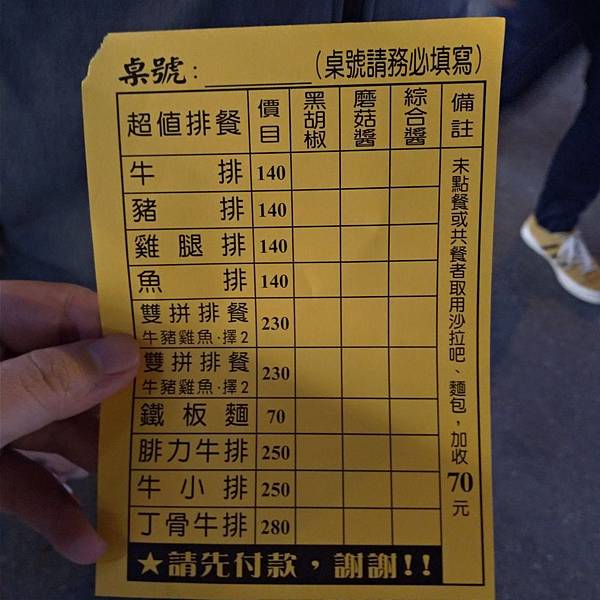 桌號：________（桌號請務必填寫）
超值排餐 價目 黑胡椒 蘑菇醬 綜合醬 備註
牛排 140
豬排 140
雞腿排 140
魚排 140
雙拼排餐 230
牛豬雞魚·擇2
雙拼排餐 230
牛豬雞魚·擇2
鐵板麵 70
腓力牛排 250
牛小排 250
丁骨牛排 280
未點餐或共餐者取用沙拉吧、麵包，加收70元
★請先付款，謝謝!!